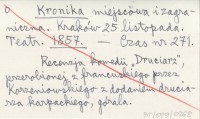 Kronika miejscowa i zagra-
niczna. Kraków 25 listopada.
Teatr. 1857. — Czas nr 271.
Recenzja komedii „Druciarz",
przerobionej z francuskiego przez
Korzeniowskiego z dodaniem drucia-
rza karpackiego, górala.